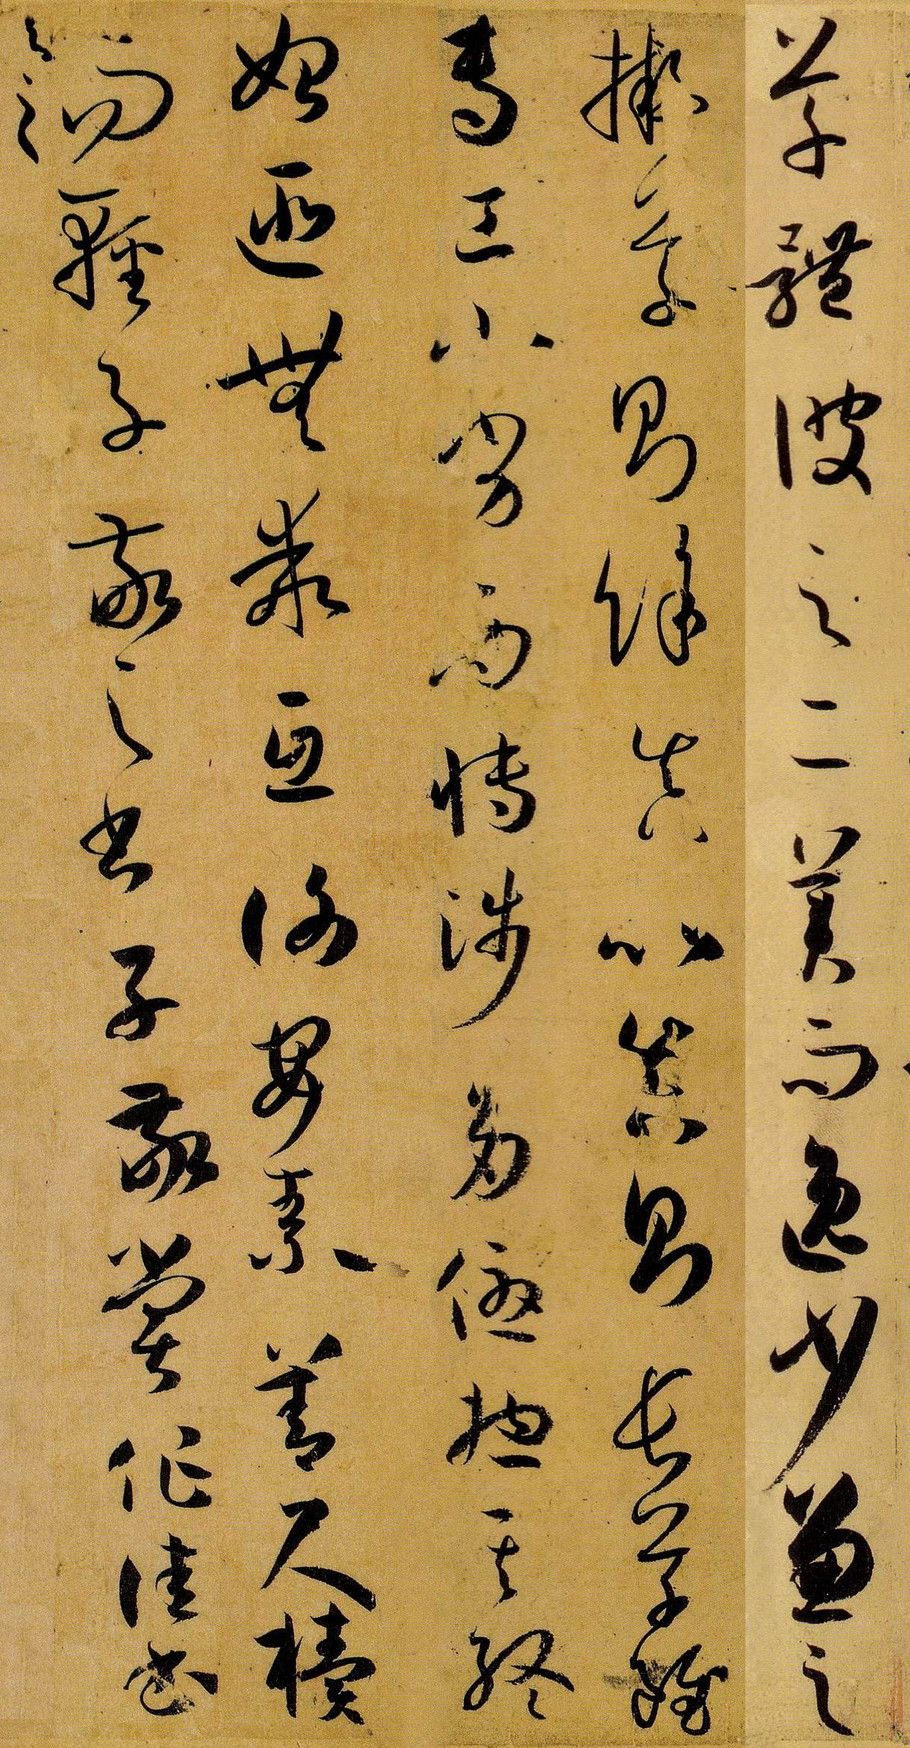 草體彼之二美而逸少兼之
擬草則餘真比真則長草雖
專工小劣而博涉多優摠其終
始匪無乖互謝安素善尺櫝
而輕子敬之書子敬嘗作佳書
與之